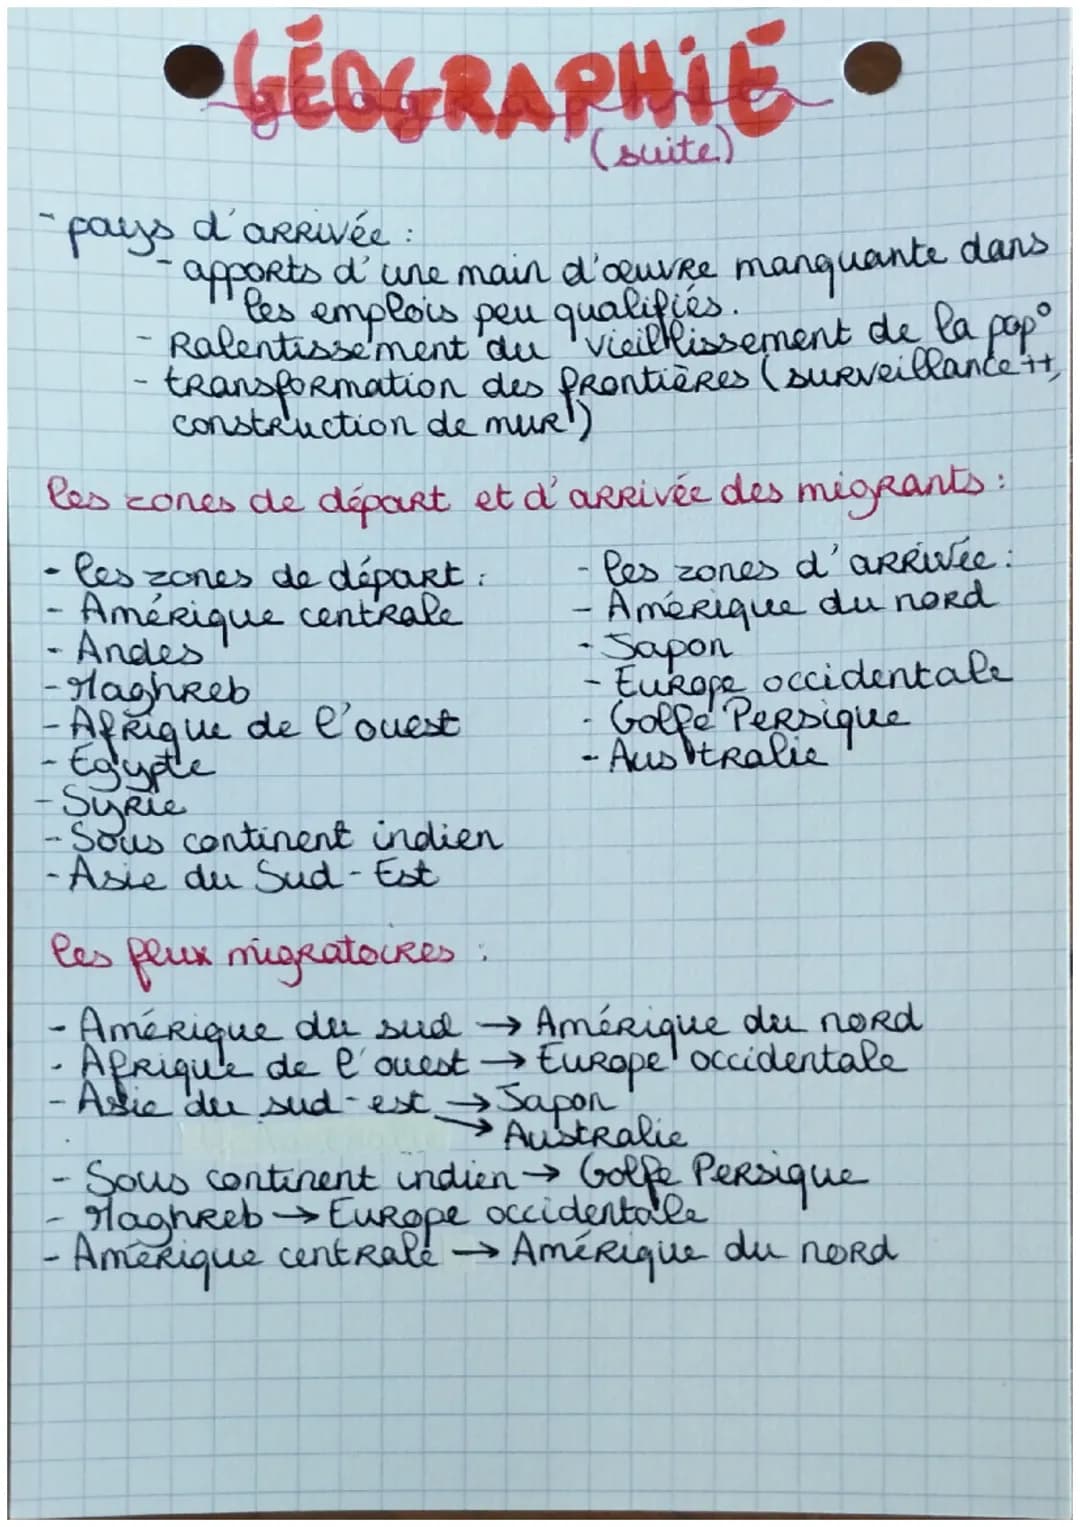 GÉOGRAPHIE
géographie
(suite)
- pays d'arrivée :
- apports d'une main d'œuvre manquante dans
les emplois peu qualifiés.
- Ralentissement du vieillissement de la pop°
- transformation des frontières (surveillance ++,
construction de mur)
les zones de départ et d'arrivée des migrants :
- les zones de départ :
- Amérique centrale
- Andes
- Maghreb
- Afrique de l'ouest
- Egypte
- Syrie
- Sous continent indien
- Asie du Sud-Est
- les zones d'arrivée :
- Amérique du nord
- Japon
- Europe occidentale
- Golfe Persique
- Australie
les flux migratoires :
- Amérique du sud → Amérique du nord
- Afrique de l'ouest → Europe occidentale
- Asie du sud-est → Japon
→ Australie
- Sous continent indien → Golfe Persique
- Maghreb → Europe occidentale
- Amérique centrale → Amérique du nord